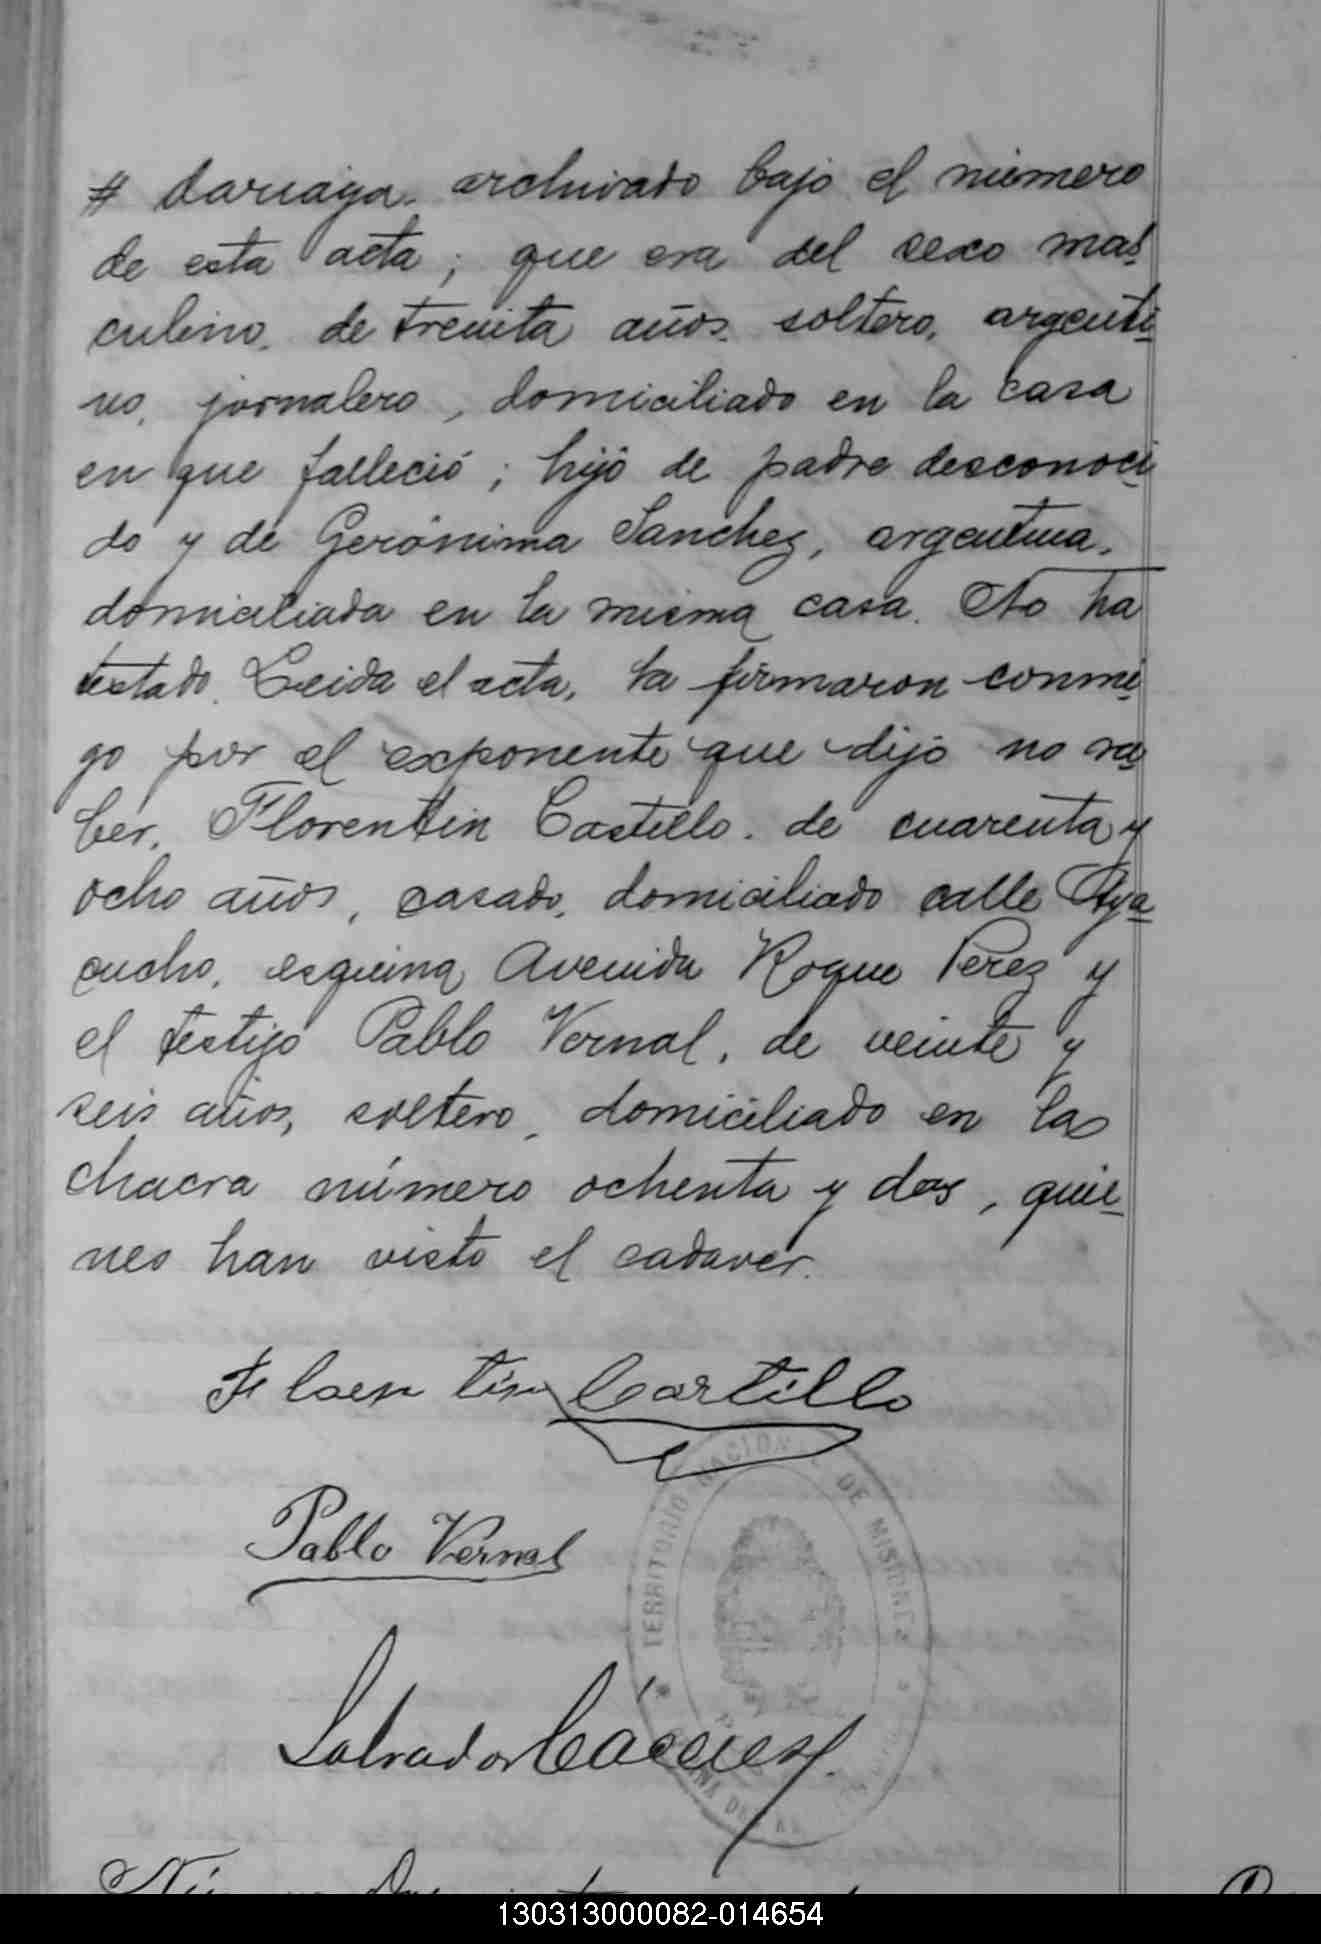 # dariaga. archivado bajo el número
de esta acta; que era del sexo mas-
culino, de treinta años. soltero, argenti-
no, jornalero, domiciliado en la casa
en que falleció; hijo de padre desconoci-
do y de Gerónima Sanchez, argentina,
domiciliada en la misma casa. No ha
testado. Leida el acta, la firmaron conmi-
go por el exponente que dijo no sa-
ber, Florentin Castillo. de cuarenta y
ocho años, casado, domiciliado calle Aya-
cucho, esquina Avenida Roque Perez y
el testigo Pablo Vernal, de veinte y
seis años, soltero, domiciliado en la
chacra número ochenta y dos, quie-
nes han visto el cadaver.
Floentin Castillo
Pablo Vernal
Salvador Cáceres
TERRITORIO NACIONAL DE MISIONES
130313000082-014654